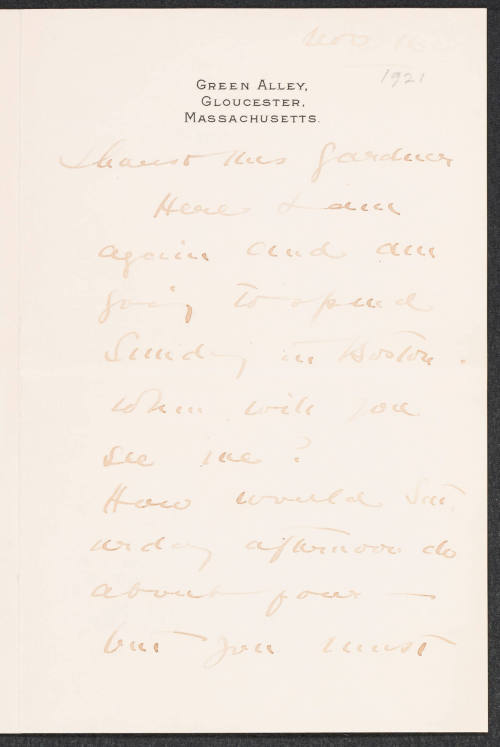 Nov
1921
GREEN ALLEY,
GLOUCESTER,
MASSACHUSETTS.
Dearest Mrs Gardner
Here I am
again and am
going to spend
Sunday in Boston.
When will you
see me?
How would Sat
urday afternoon do
about four —
but you must